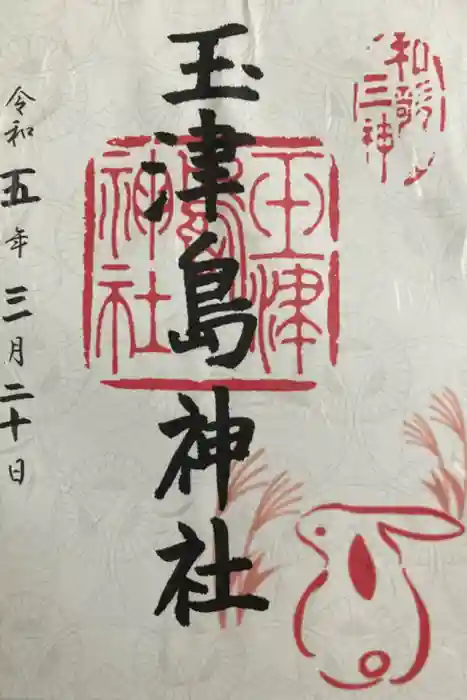 和歌
三神
玉津島神社
玉津
島
神社
令和五年三月二十日